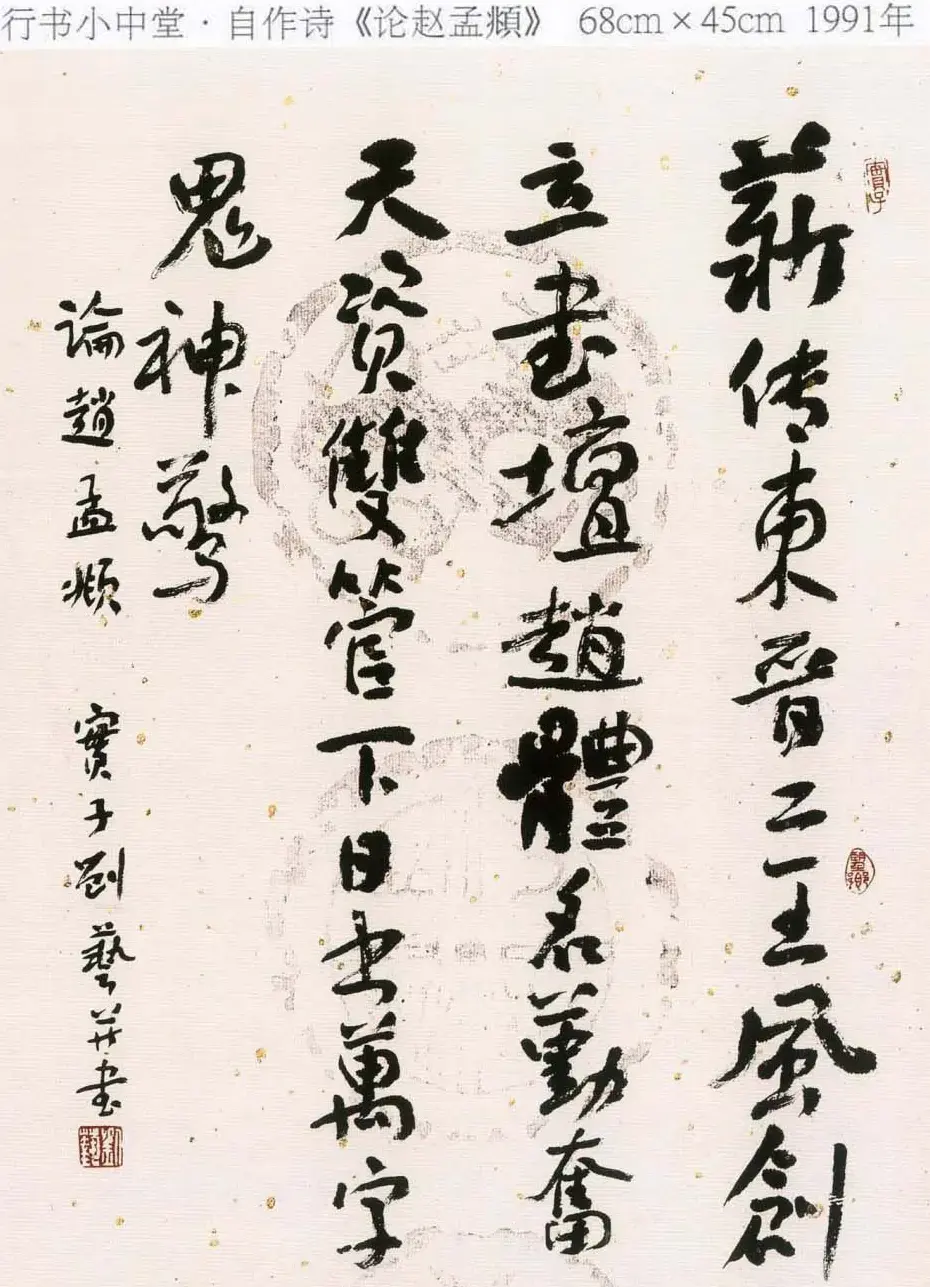 行书小中堂·自作诗《论赵孟頫》 68cm×45cm 1991年
薪传東晋二王風創
立書壇趙體名勤奮
天資雙管下日书萬字
鬼神驚
論趙孟頫 實子劉藝并書
實子
劉藝